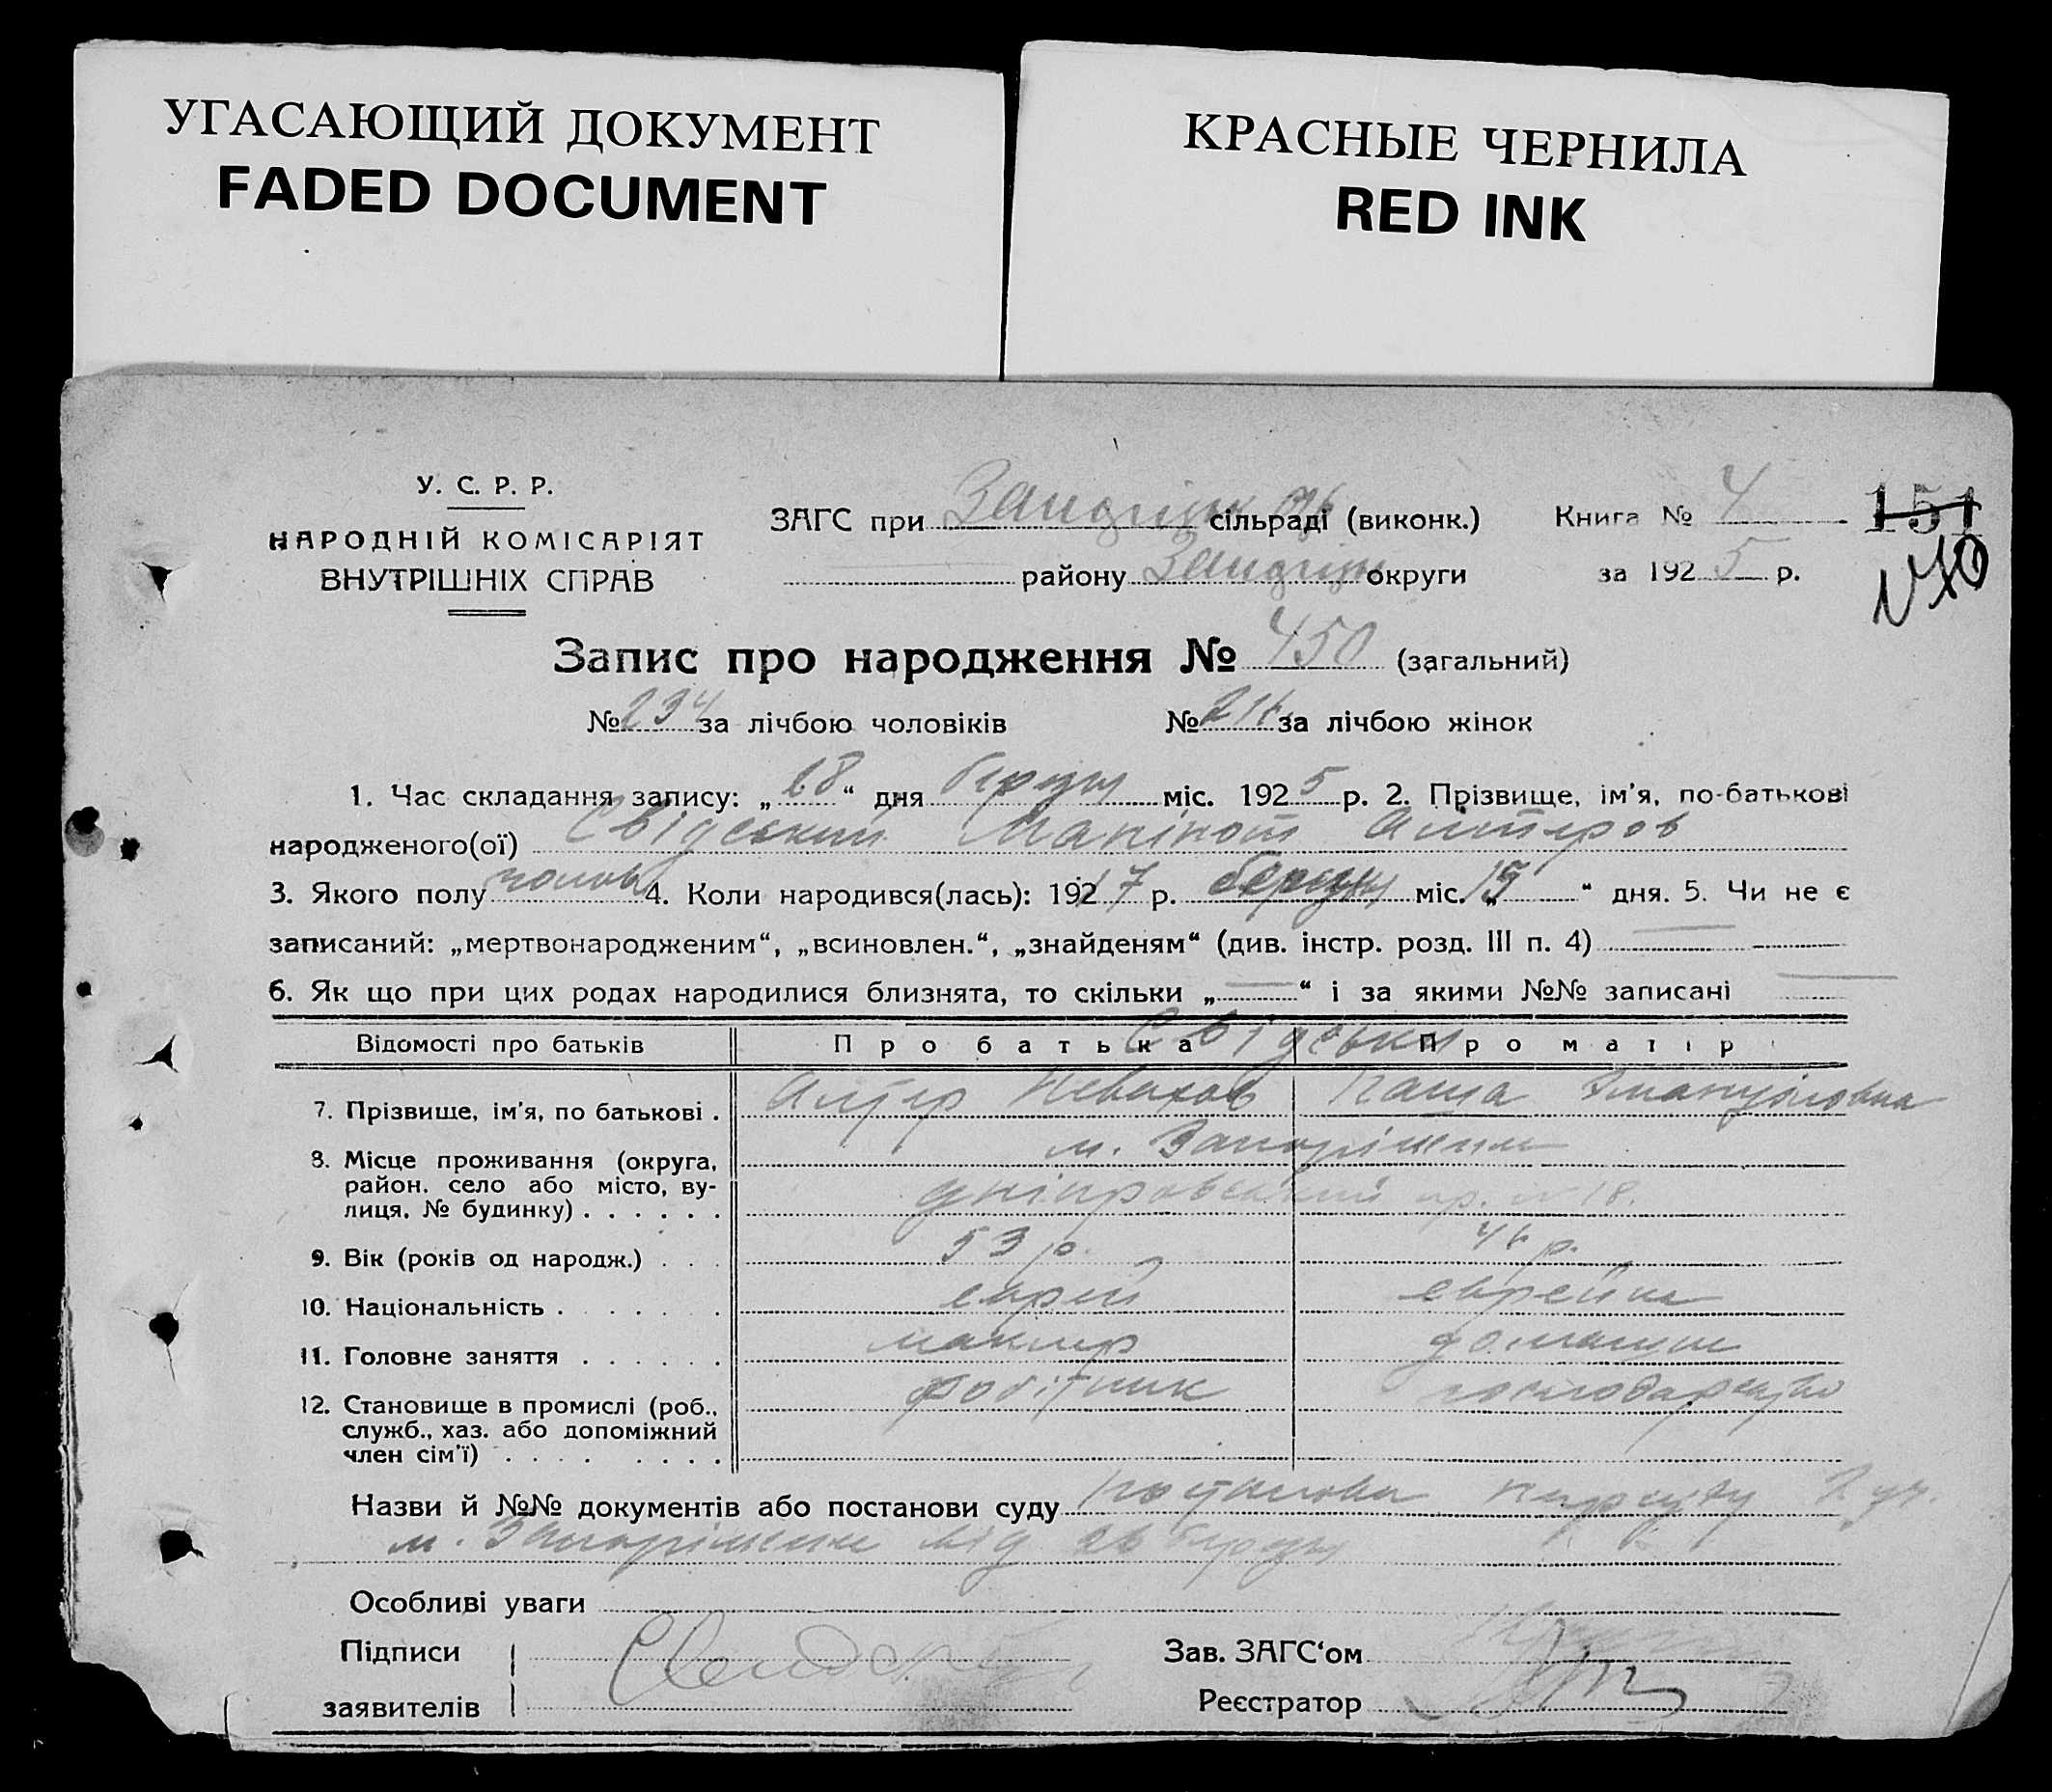 УГАСАЮЩИЙ ДОКУМЕНТ
FADED DOCUMENT
КРАСНЫЕ ЧЕРНИЛА
RED INK
У. С. Р. Р.
НАРОДНІЙ КОМІСАРІЯТ
ВНУТРІШНІХ СПРАВ
ЗАГС при сільраді (виконк.)
району округи
Книга № 4
за 1925 р.
151
Запис про народження № 450 (загальний)
№ 234 за лічбою чоловіків № 216 за лічбою жінок
1. Час складання запису: „28“ дня міс. 1925 р. 2. Прізвище, ім'я, по-батькові
народженого(ої) Свідський Алтеров
3. Якого полу чолов 4. Коли народився(лась): 1917 р. міс. „15“ дня. 5. Чи не є
записаний: „мертвонародженим“, „всиновлен.“, „знайденям“ (див. інстр. розд. III п. 4)
6. Як що при цих родах народилися близнята, то скільки „—“ і за якими №№ записані —
Відомості про батьків Про батька Про матір
Свідськи
7. Прізвище, ім'я, по батькові . Алтер Паша
8. Місце проживання (округа, м. Запоріжжя
район, село або місто, ву- Дніпровський пр. № 18.
лиця, № будинку) . . . . . .
9. Вік (років од народж.) . . . 53 р. 46 р.
10. Національність . . . . . . еврей еврейка
11. Головне заняття . . . . . . маклер
12. Становище в промислі (роб., робітник
служб., хаз. або допоміжний
член сім'ї) . . . . . . . .
Назви й №№ документів або постанови суду постанова нарсуду 2 уч.
м. Запоріжжя від 26
Особливі уваги
Підписи Зав. ЗАГС'ом
заявителів Реєстратор